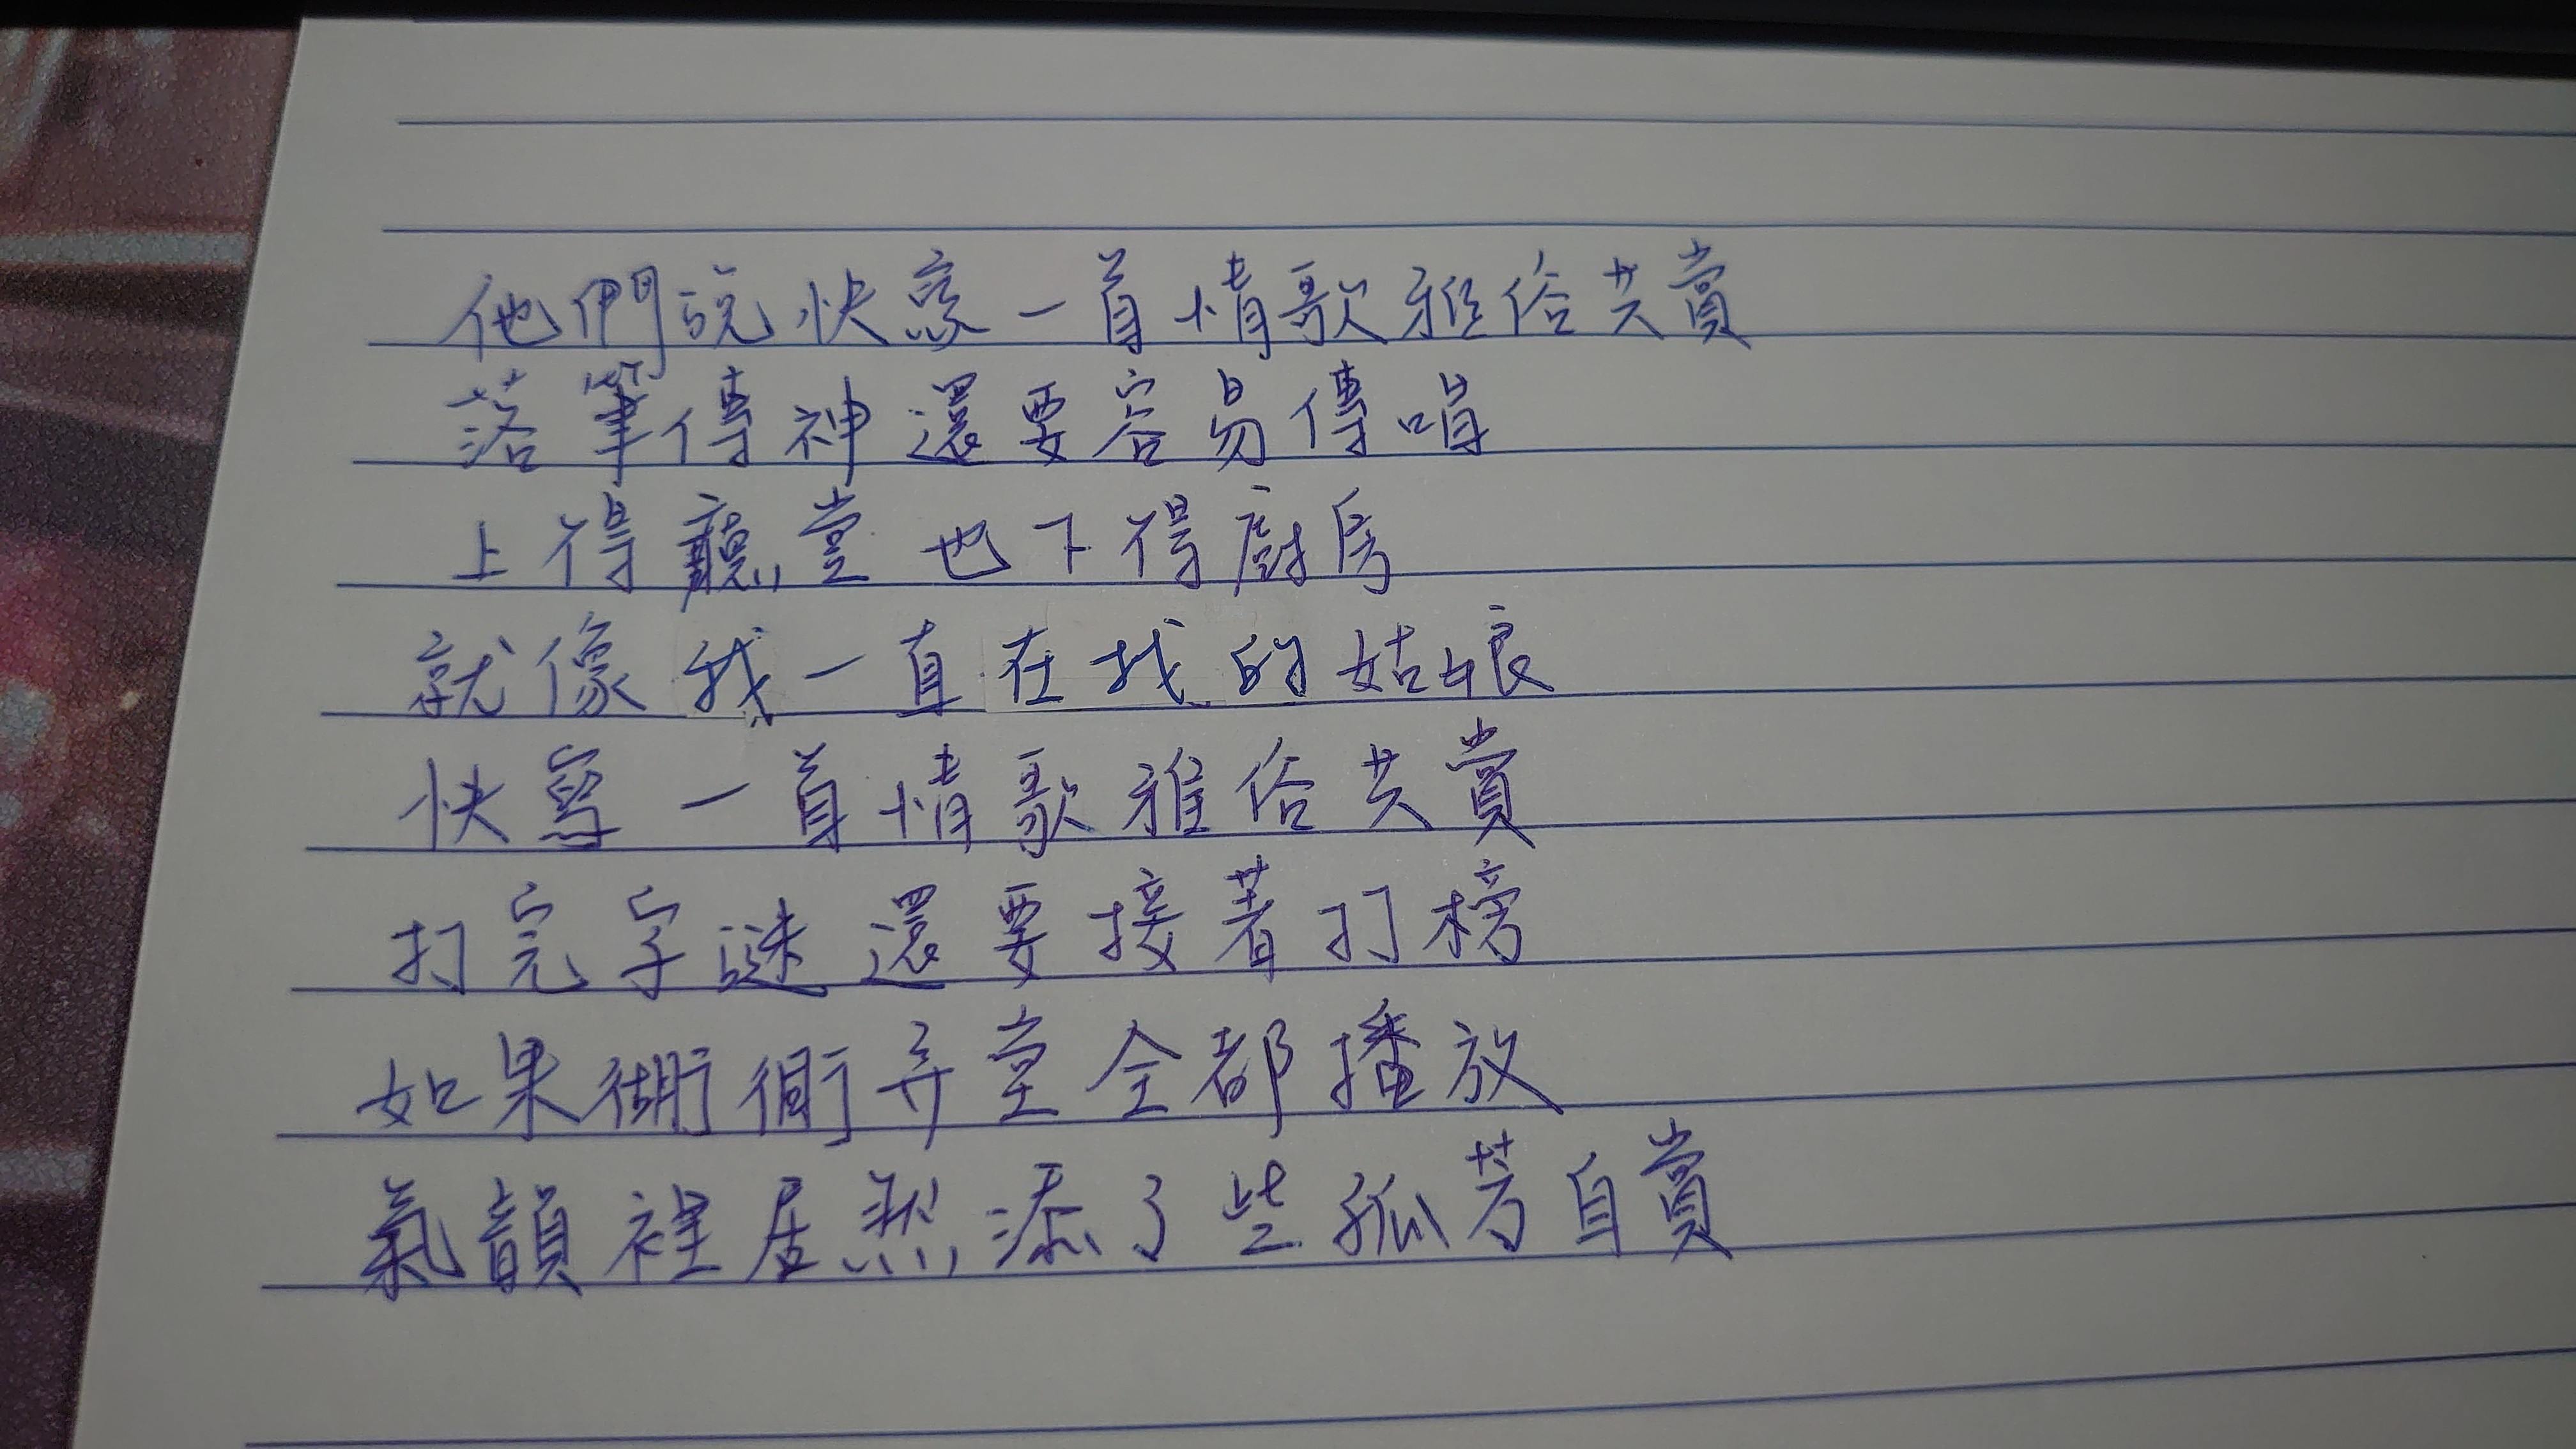 他們說快寫一首情歌雅俗共賞
落筆傳神還要容易傳唱
上得聽堂也下得廚房
就像我一直在找的姑娘
快寫一首情歌雅俗共賞
打完字謎還要接著打榜
如果衚衕弄堂全都播放
氣韻裡居然添了些孤芳自賞